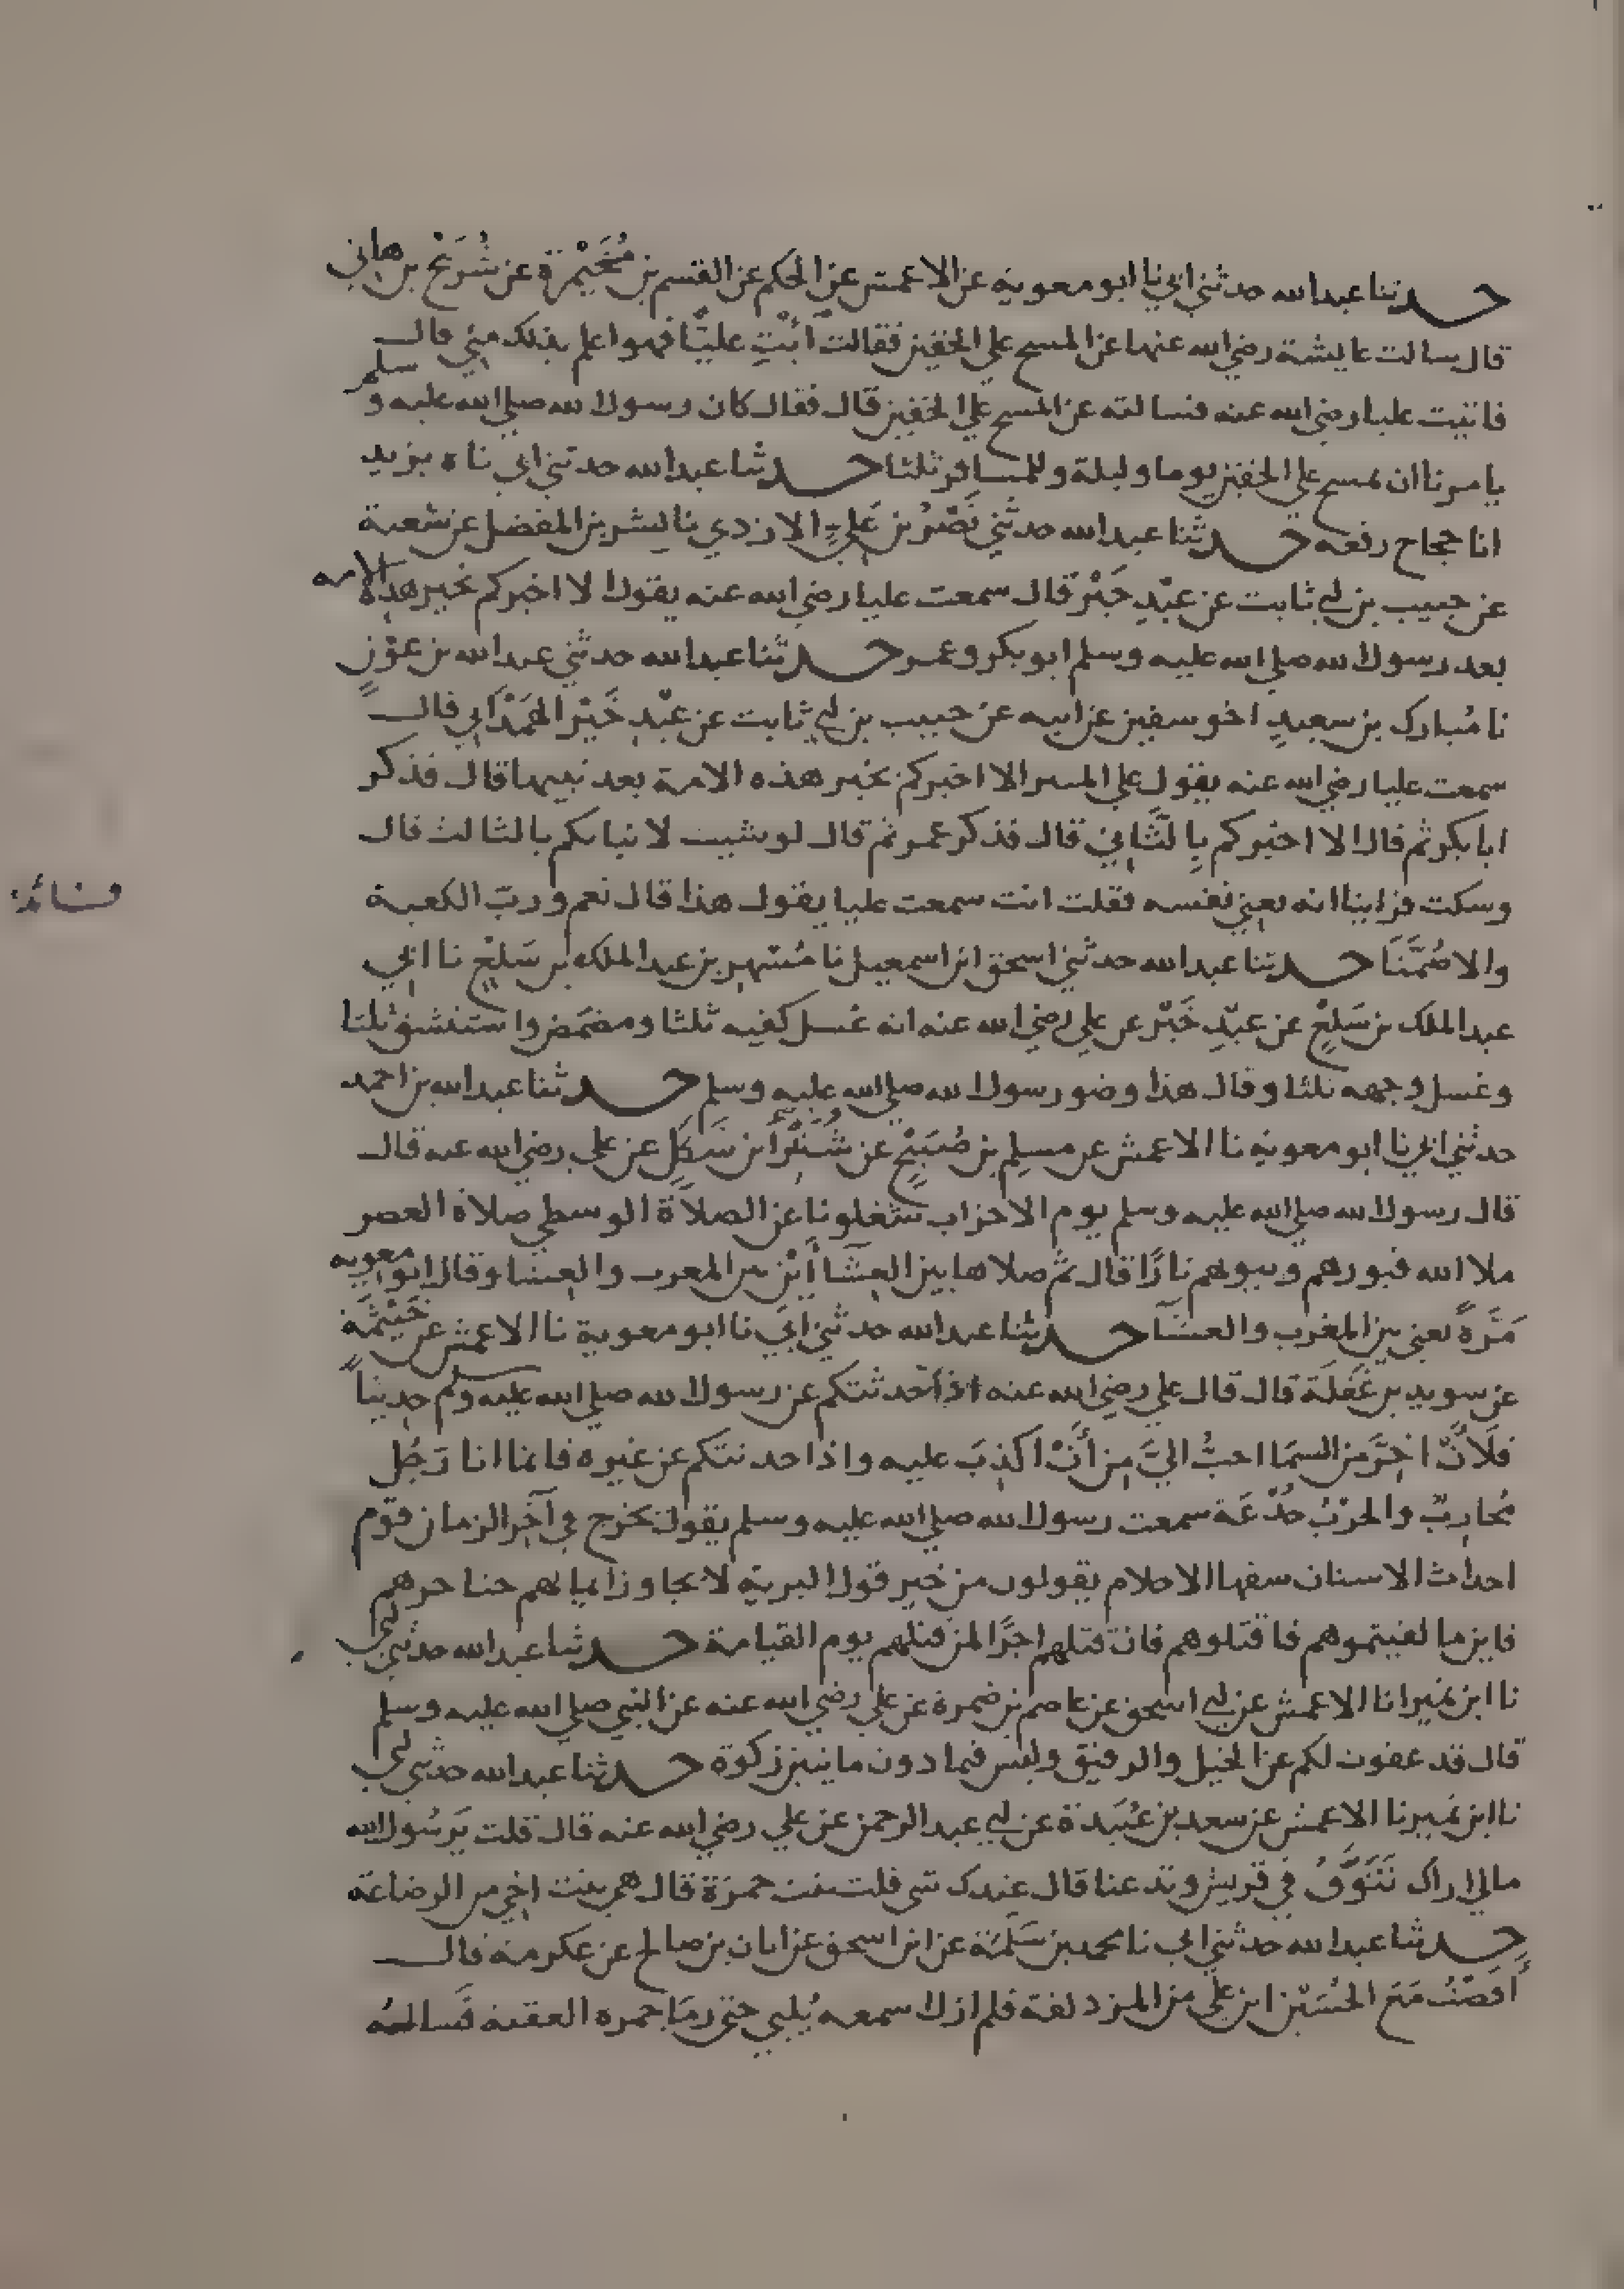 حدثنا عبد الله حدثني ابي نا ابو معوية عن الاعمش عن الحكم عن القسم بن مُخَيْمِرة عن شُرَيْح بن هاني
قال سالت عايشة رضي الله عنها عن المسح على الخفين فقالت أئتِ عليًّا فهو اعلم بذلك مني قال
فاتيت عليا رضي الله عنه فسالته عن المسح على الخفين قال فقال كان رسول الله صلى الله عليه وسلم
يامرنا ان نمسح على الخفين يوما وليلة وللمسافر ثلثا حدثنا عبد الله حدثني ابي ناه يزيد
انا حجاج رفعه حدثنا عبد الله حدثني نَصْرُ بن عَليٍّ الازدي نا بشر بن المفضل عن شعبة
عن حبيب بن ابي ثابت عن عبْدِ خَيْر قال سمعت عليا رضي الله عنه يقول الا اخبركم بخير هذه الامه
بعد رسول الله صلى الله عليه وسلم ابو بكر وعمر حدثنا عبد الله حدثني عبد الله بن عوْنٍ
نا مُبارك بن سعيدٍ اخو سفين عن ابيه عن حبيب بن ابي ثابت عن عبْدِ خَيْر الهَمْدَاني قال
سمعت عليا رضي الله عنه يقول على المنبر الا اخبركم بخير هذه الامة بعد نبيها قال فذكر
ابا بكر ثم قال الا اخبركم بِالثَّاني قال فذكر عمر ثم قال لو شيت لانباتكم بالثالث قال
وسكت فراينا انه يعني نفسه فقلت انت سمعت عليا يقول هذا قال نعم وربّ الكعبة
والا صُمَّتَا حدثنا عبد الله حدثني اسحق ابن اسمعيل نا مُسْهِر بن عبد الملك بن سَلْعٍ نا ابي
عبد الملك بن سَلْعٍ عن عبْدِ خَيْر عن علي رضي الله عنه انه غسل كفيه ثلثا ومضمض واستنشق ثلثا
وغسل وجهه ثلثا وقال هذا وضو رسول الله صلى الله عليه وسلم حدثنا عبد الله بن احمد
حدثني ابي نا ابو معوية نا الاعمش عن مسلِم بن صُبَيْحٍ عن شُتَيْر ابن شَكَلٍ عن علي رضي الله عنه قال
قال رسول الله صلى الله عليه وسلم يوم الاحزاب شغلونا عن الصلاة الوسطي صلاة العصر
ملا الله قبورهم وبيوتهم نارًا قال ثم صلاها بين العِشَآأَيْن بين المغرب والعِشا وقال ابو معويه
مَرَّةً يعني بين المغرب والعشَآ حدثنا عبد الله حدثني ابي نا ابو معوية نا الاعمش عن خَيْثَمَة
عن سويد بن غَفَلَة قال قال علي رضي الله عنه اذا حدثتكم عن رسول الله صلى الله عليه وسلم حديثاً
فلَأَنْ اخِرَّ من السمَا احبُّ اليَّ مِن أَنْ اكذِبَ عليه واذا حدثتكم عن غيره فانما انا رَجُل
مُحَارِبٌ والحرْبُ خُدْعَة سمعت رسول الله صلى الله عليه وسلم يقول يخرج في آخِر الزمان قوم
احداث الاسنان سفها الاحلام يقولون من خير قول البرية لا يجاوز ايمانهم حناجرهم
فاين ما لقيتموهم فاقتلوهم فان قتلهم اجرًا لمن قتلهم يوم القيامة حدثنا عبد الله حدثني ابي
نا ابن نُمَير انا الاعمش عن ابي اسحق عن عاصم بن ضمرة عن علي رضي الله عنه عن النبي صلى الله عليه وسلم
قال قد عفوت لكم عن الخيل والرقيق وليس فيما دون مايتين زكوة حدثنا عبد الله حدثني ابي
نا ابن نُمير نا الاعمش عن سعد بن عُبَيْدة عن ابي عبد الرحمن عن علي رضي الله عنه قال قلت يَرسُول الله
مالي اراك تَتَنَوَّقُ في قريش وتدعنا قال عندك شي قلت بنت حمزة قال هي بنت اخي من الرضاعة
حدثنا عبد الله حدثني ابي نا محمد بن سَلَمَة عن ابن اسحق عن ابان بن صالح عن عكرمة قال
أفضْتُ مَعَ الحُسَيْن ابن علي من المزدلفة فلم ازل اسمعه يُلبي حتى رمَا جمره العقبه فسالته